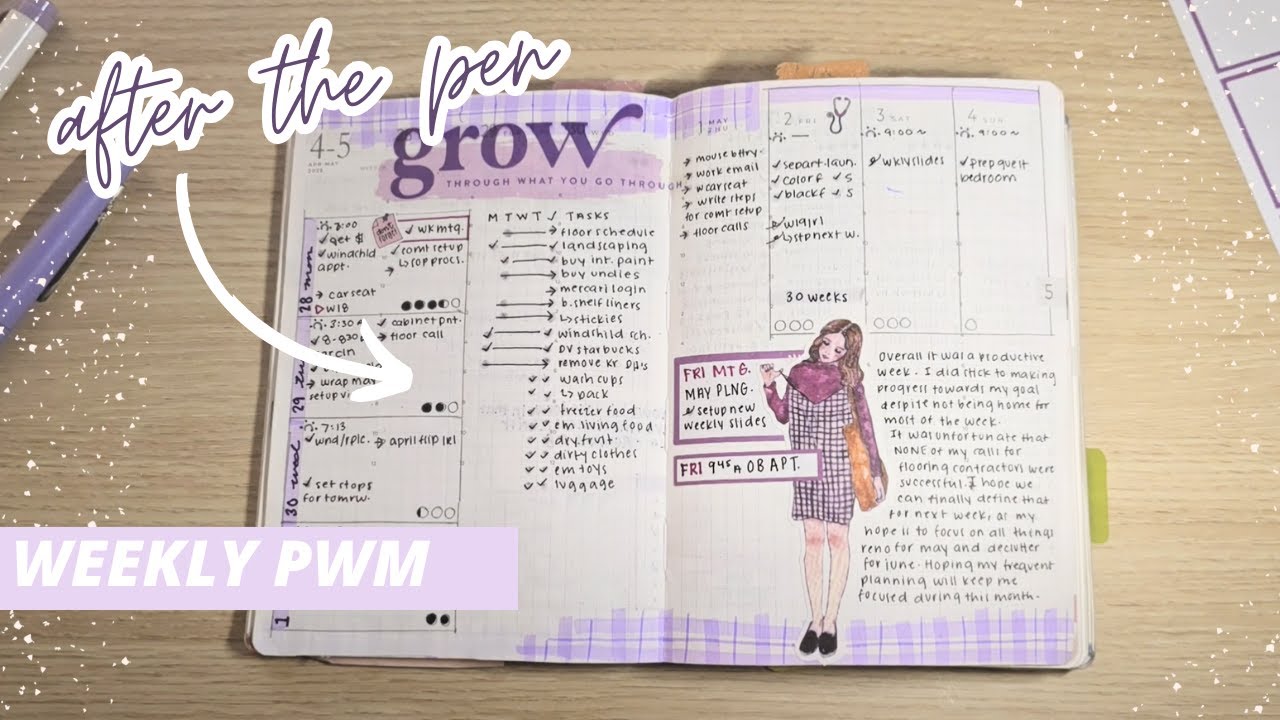 after the pen
WEEKLY PWM
4-5
APR-MAY
2025
grow
THROUGH WHAT YOU GO THROUGH
28 mon
✓ get $
✓ windchld
appt.
→ car seat
don't forget
✓ wk mtg.
✓ comt setup
↳ sop procs.
29 tu
3:30
✓ 8-830
→ wrap mar
setup
✓ cabinet pnt.
→ floor call
30 wed
7:13
✓ wnd/rplc.
→ april flip
✓ set stops
for tomrw.
1
M T W T ✓ TASKS
floor schedule
landscaping
buy int. paint
buy undies
mercari login
b.shelf liners
↳ stickies
windshild sch.
DV starbucks
remove kr
✓ ✓ wash cups
✓ ✓ ↳ pack
✓ ✓ freezer food
✓ ✓ em living food
✓ ✓ dry fruit
✓ ✓ dirty clothes
✓ ✓ em toys
✓ ✓ luggage
1 MAY
THU
→ mouse bttry
→ work email
→ car seat
→ write steps
for comt setup
→ floor calls
2 FRI
✓ separt. laun.
✓ color F ✓ S
✓ black F ✓ S
30 weeks
3 SAT
9:00~
wkly slides
4 SUN
9:00~
✓ prep guest
bedroom
5
FRI MTG.
MAY PLNG.
setup new
weekly slides
FRI 945A OB APT.
Overall it was a productive
week. I did stick to making
progress towards my goal
despite not being home for
most of the week.
It was unfortunate that
NONE of my calls for
flooring contractors were
successful. I hope we
can finally define that
for next week, as my
hope is to focus on all things
reno for may and declutter
for june. Hoping my frequent
planning will keep me
focused during this month.